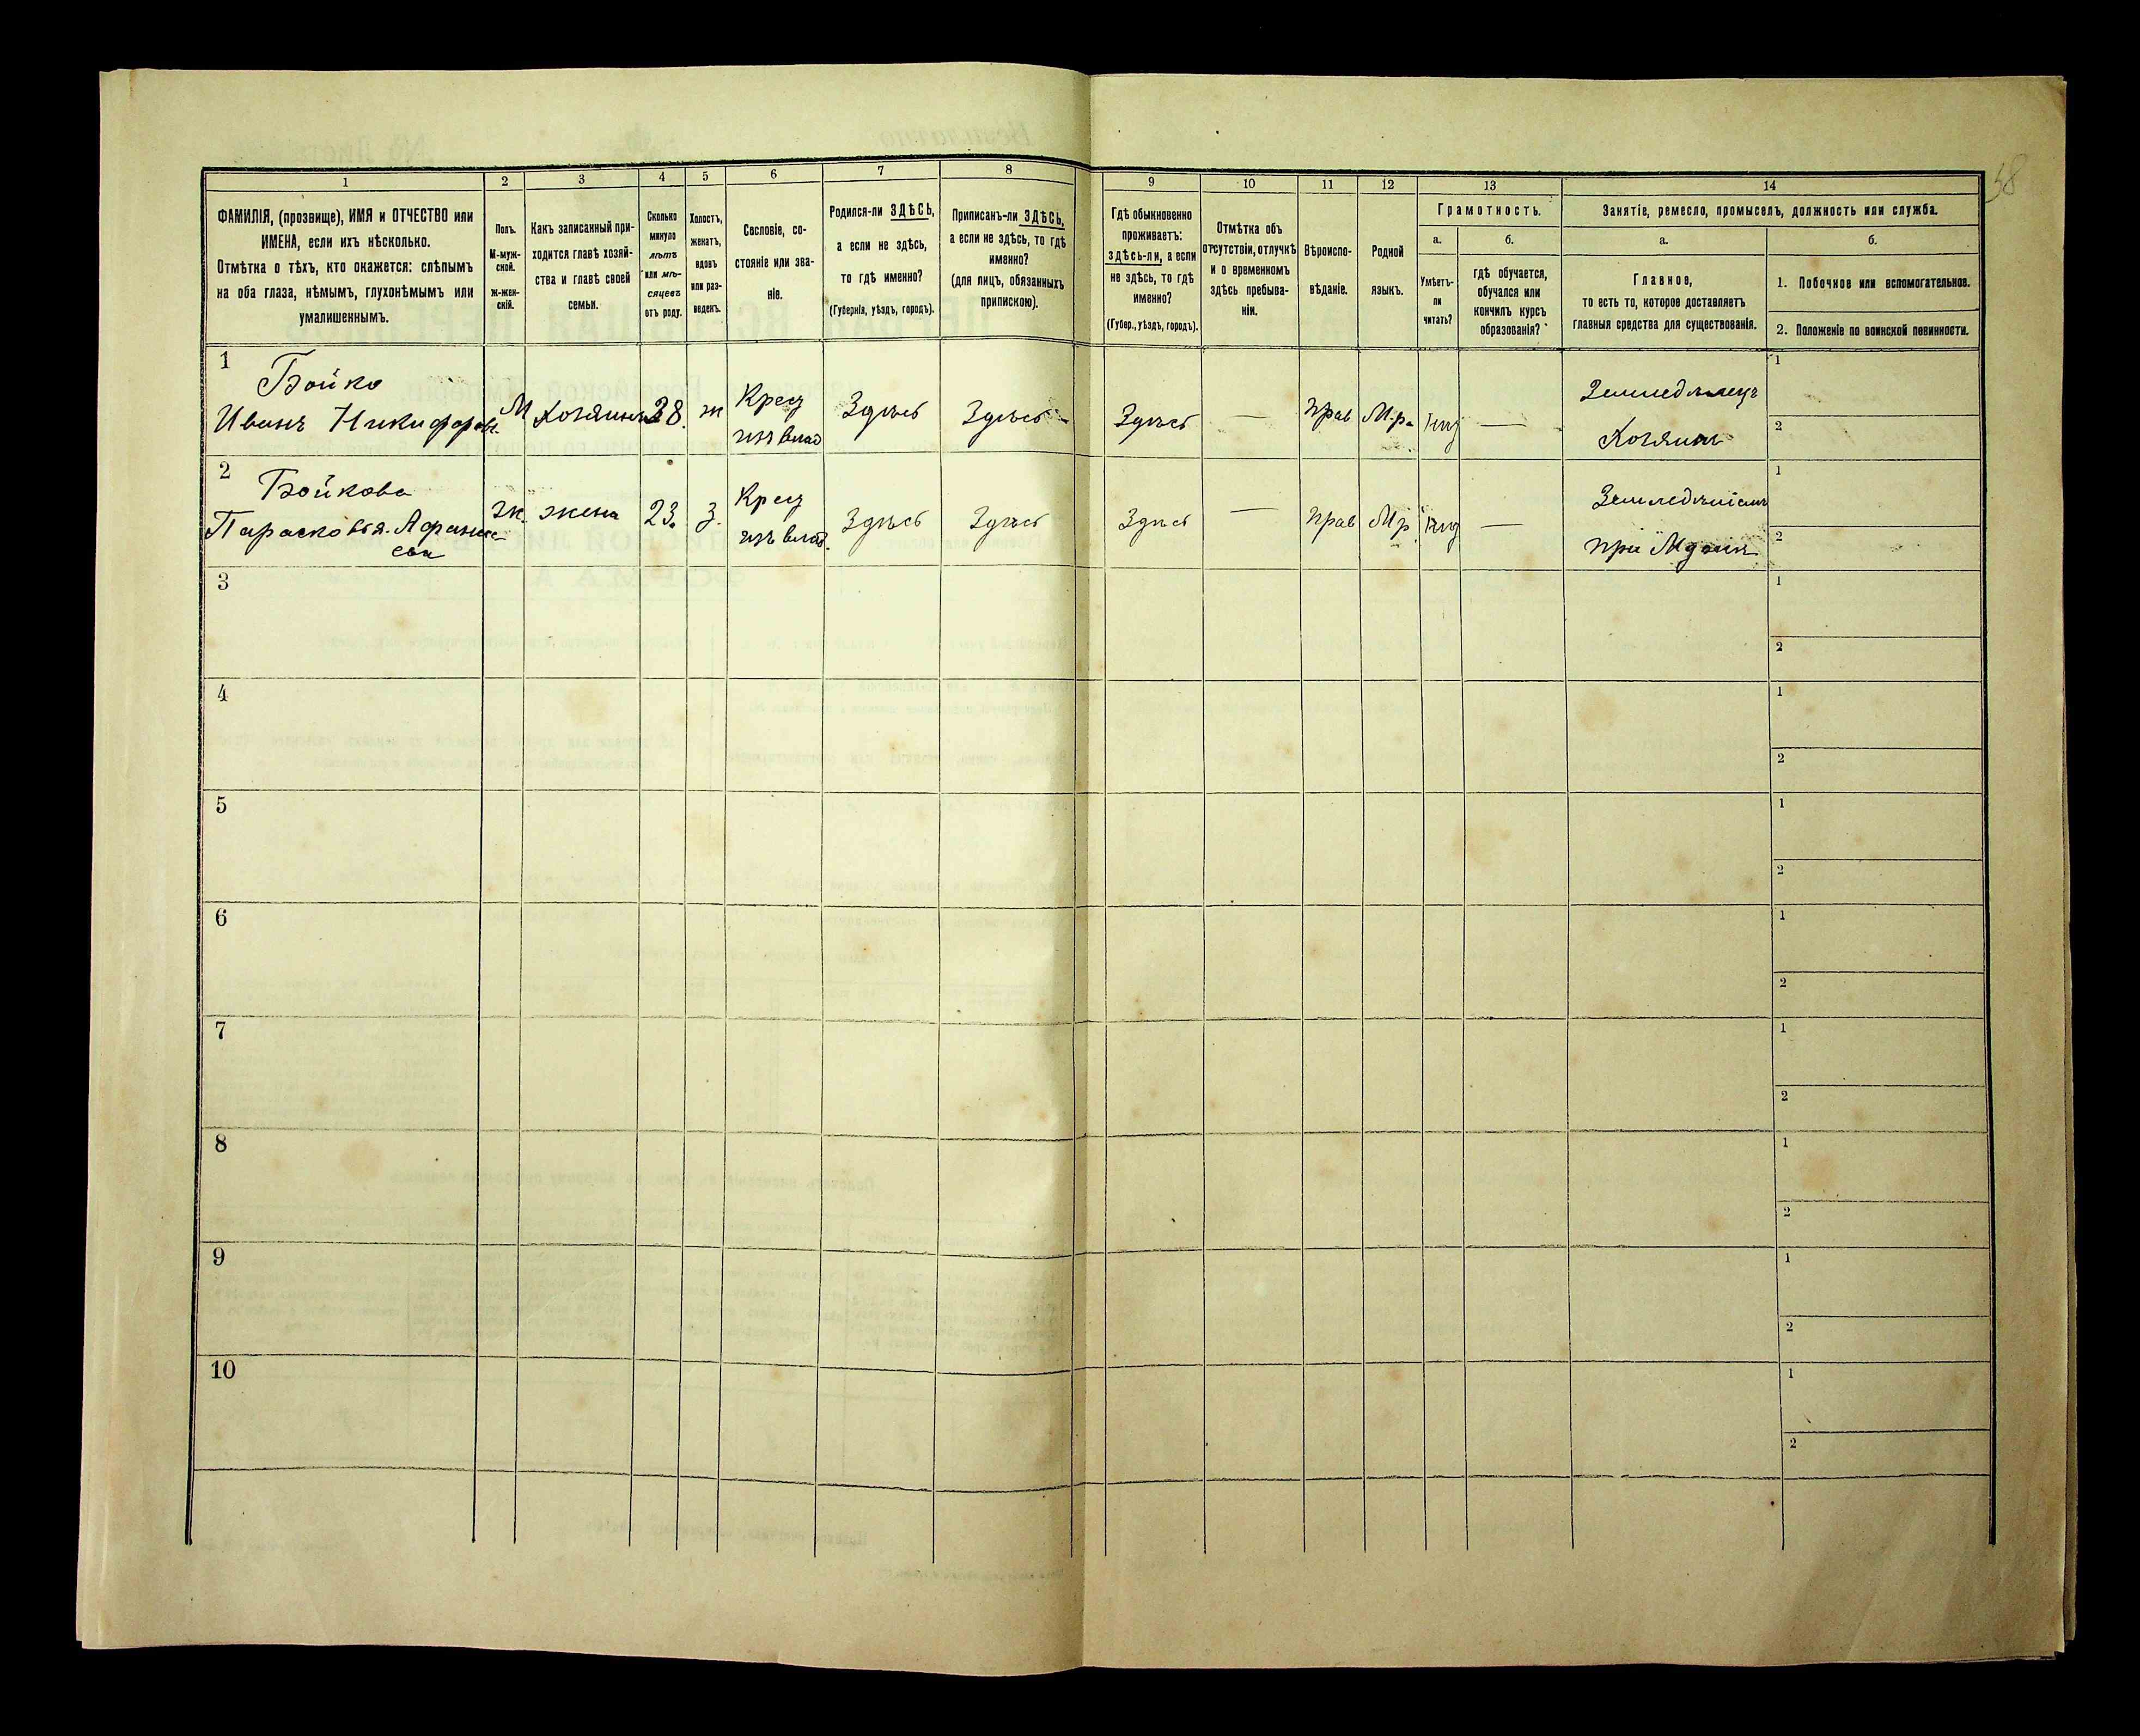 58
1 2 3 4 5 6 7 8 9 10 11 12 13 14
ФАМИЛІЯ, (прозвище), ИМЯ и ОТЧЕСТВО или
ИМЕНА, если ихъ нѣсколько.
Отмѣтка о тѣхъ, кто окажется: слѣпымъ
на оба глаза, нѣмымъ, глухонѣмымъ или
умалишеннымъ.
Полъ.
М-муж-
ской.
ж-жен-
скій.
Какъ записанный при-
ходится главѣ хозяй-
ства и главѣ своей
семьи.
Сколько
минуло
лѣтъ
или мѣ-
сяцевъ
отъ роду.
Холостъ,
женатъ,
вдовъ
или раз-
веденъ.
Сословіе, со-
стояніе или зва-
ніе.
Родился-ли ЗДѢСЬ,
а если не здѣсь,
то гдѣ именно?
(Губернія, уѣздъ, городъ).
Приписанъ-ли ЗДѢСЬ,
а если не здѣсь, то гдѣ
именно?
(для лицъ, обязанныхъ
припискою).
Гдѣ обыкновенно
проживаетъ:
здѣсь-ли, а если
не здѣсь, то гдѣ
именно?
(Губер., уѣздъ, городъ).
Отмѣтка объ
отсутствіи, отлучкѣ
и о временномъ
здѣсь пребыва-
ніи.
Вѣроиспо-
вѣданіе.
Родной
языкъ.
Грамотность.
а.
Умѣетъ-
ли
читать?
б.
гдѣ обучается,
обучался или
кончилъ курсъ
образованія?
Занятіе, ремесло, промыселъ, должность или служба.
а.
Главное,
то есть то, которое доставляетъ
главныя средства для существованія.
б.
1. Побочное или вспомогательное.
2. Положеніе по воинской повинности.
1
Бойко
Иванъ Никифоровъ
М
Хозяинъ
28.
ж
Крес
изъ влад
Здѣсь
Здѣсь -
Здѣсь
—
прав
М.р.
—
Земледѣлецъ
Хозяинъ
1
2
2
Бойкова
Парасковья. Афанась
ева
ж.
жена
23.
з.
Крес
изъ влад.
Здѣсь
Здѣсь
Здѣсь
—
прав
М р.
—
при
1
2
3
1
2
4
1
2
5
1
2
6
1
2
7
1
2
8
1
2
9
1
2
10
1
2